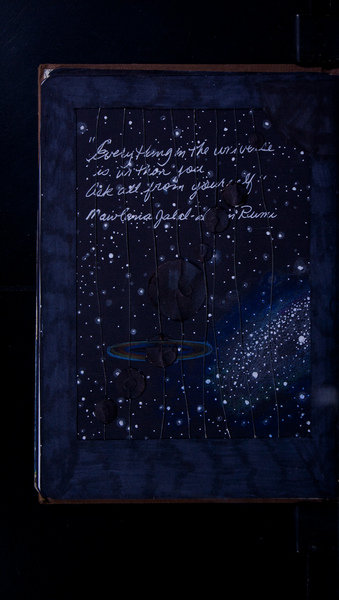 "Everything in the universe
is within you
Ask all from yourself."
Mawlana Jalal-a Rumi